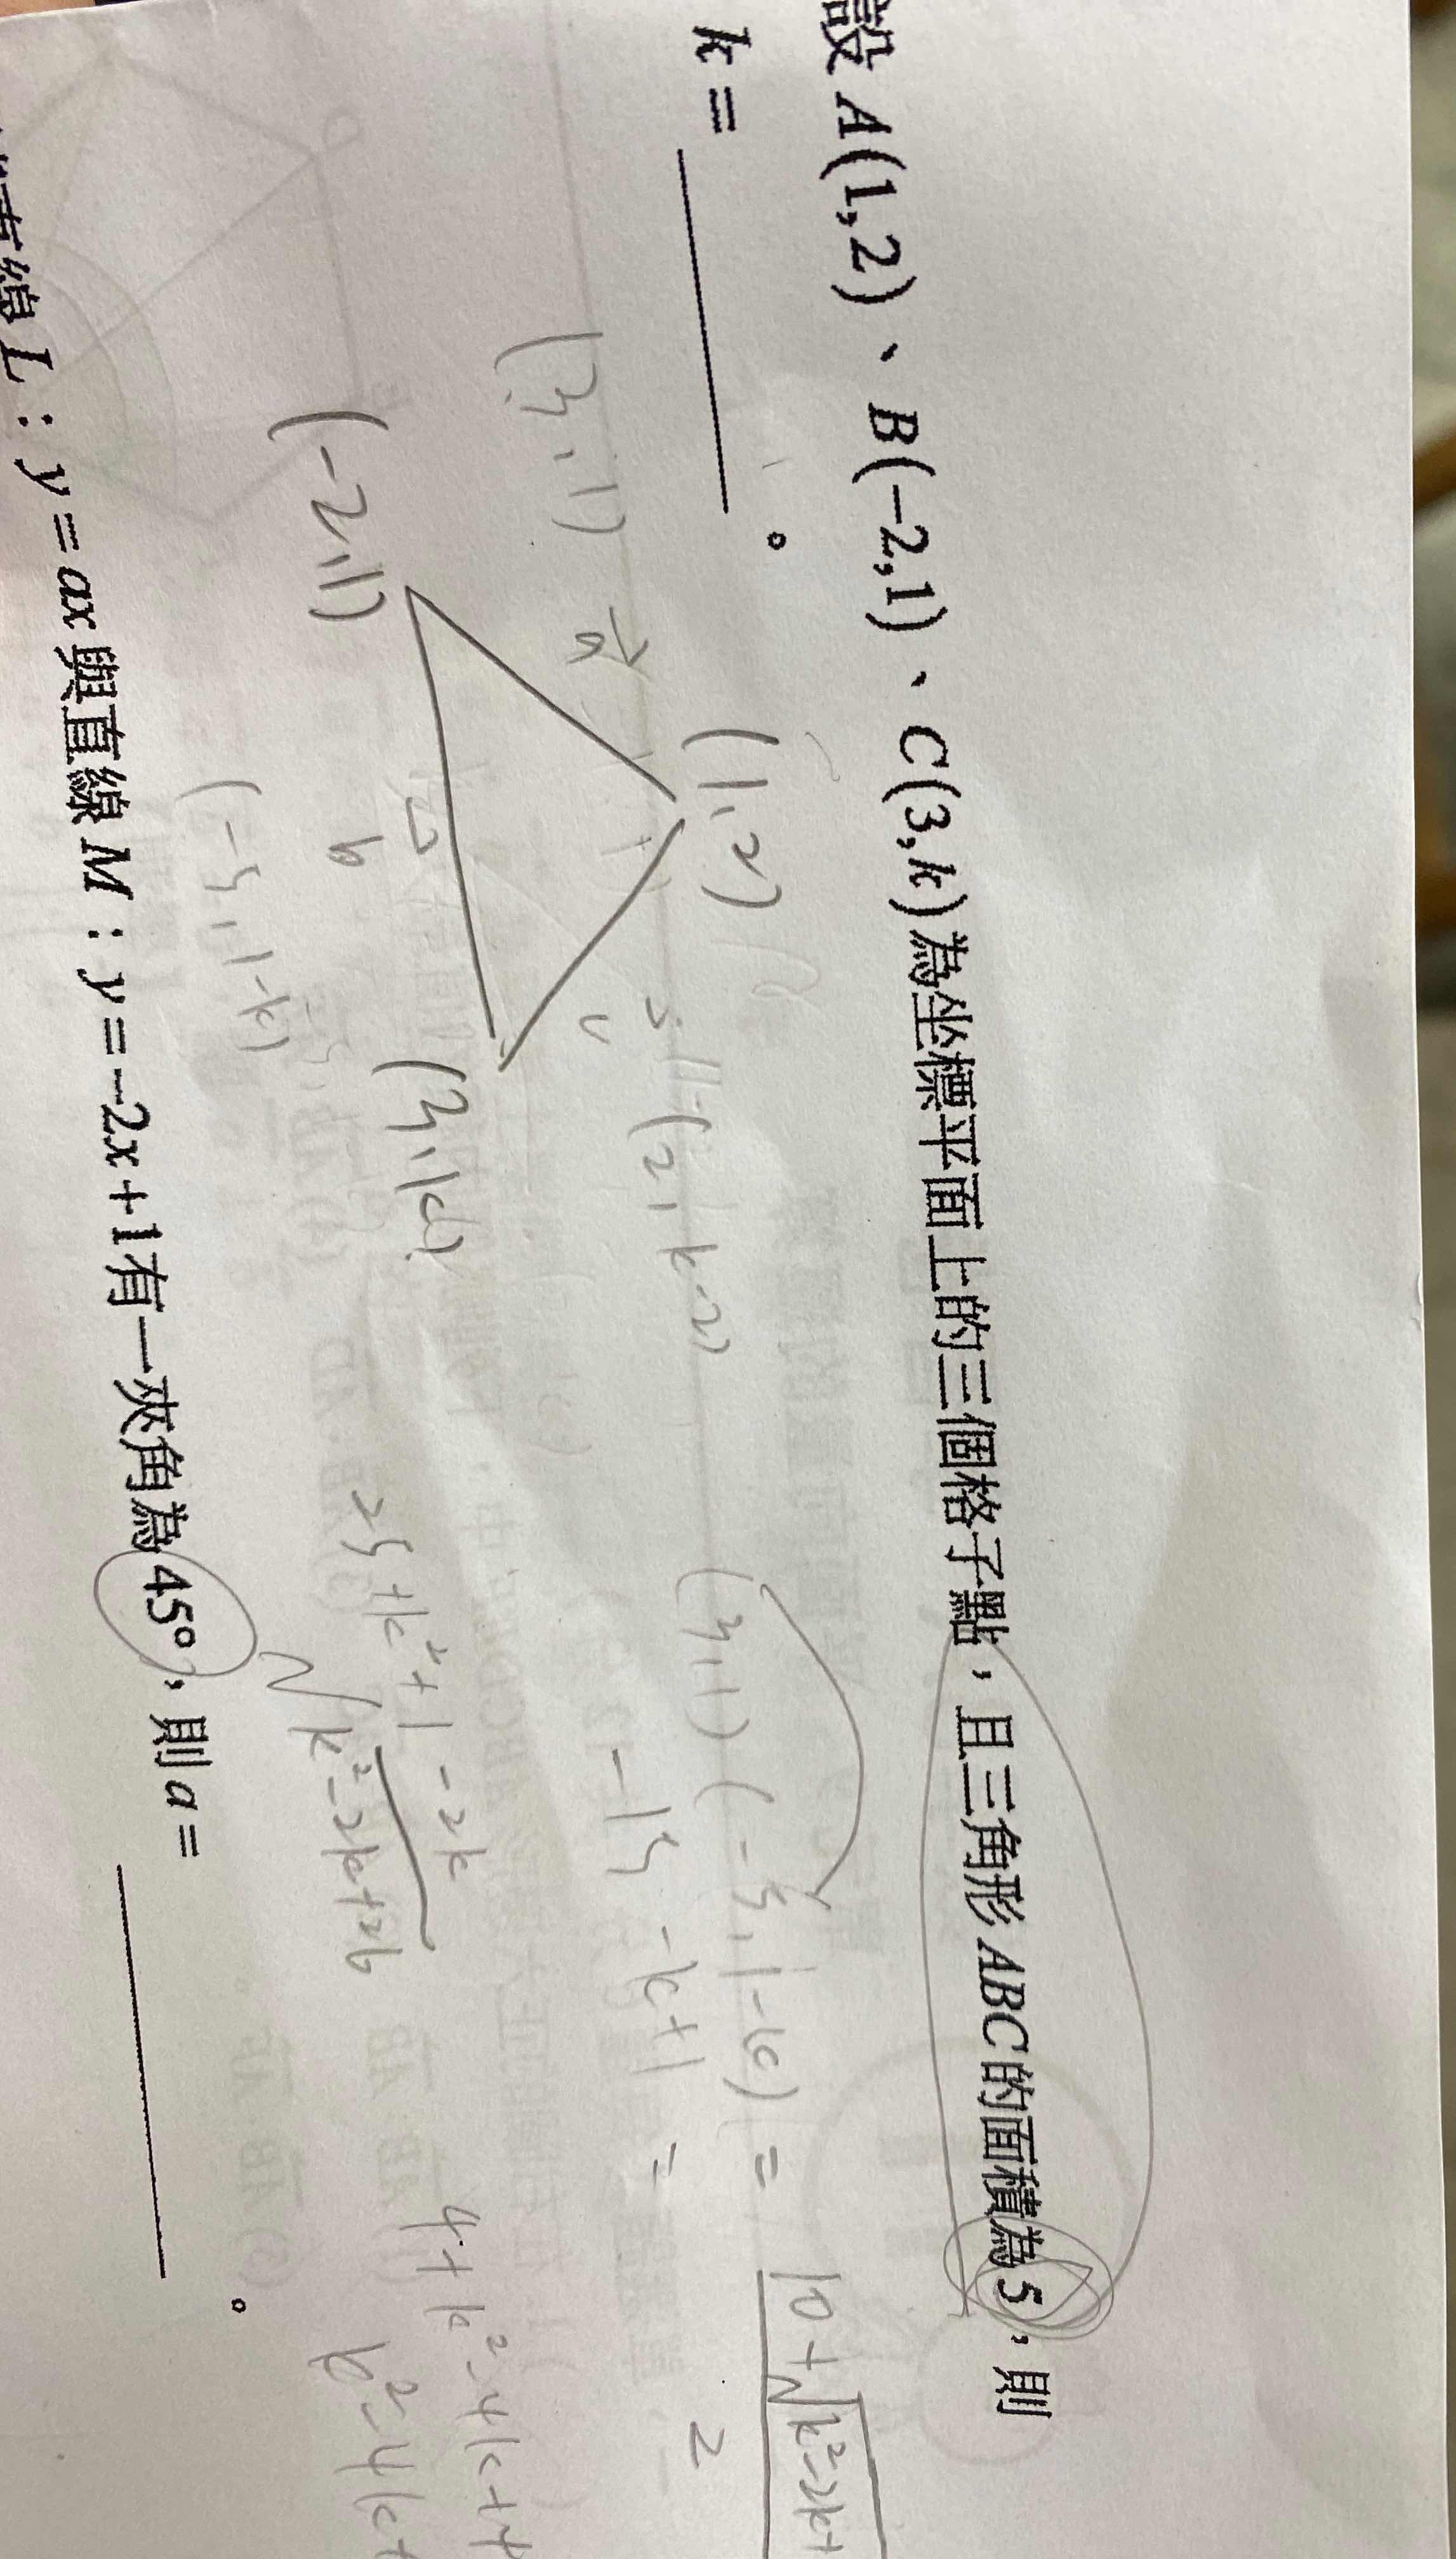 設 A(1,2)、B(-2,1)、C(3,k)為坐標平面上的三個格子點，且三角形 ABC 的面積為 5，則
k = ________。
(1,2)
(3,1)
(2,k-2)
(-2,1)
(3,k)
b
(-5,1-k)
(3,1) (-5,1-k) =
10 + √k²-2k+
2
-15 -k+1 =
25+k²+1-2k
√k²-2k+26
4+k²-4k+4
k²-4k+
直線 L：y = ax 與直線 M：y = -2x+1有一夾角為 45°，則 a = ________。